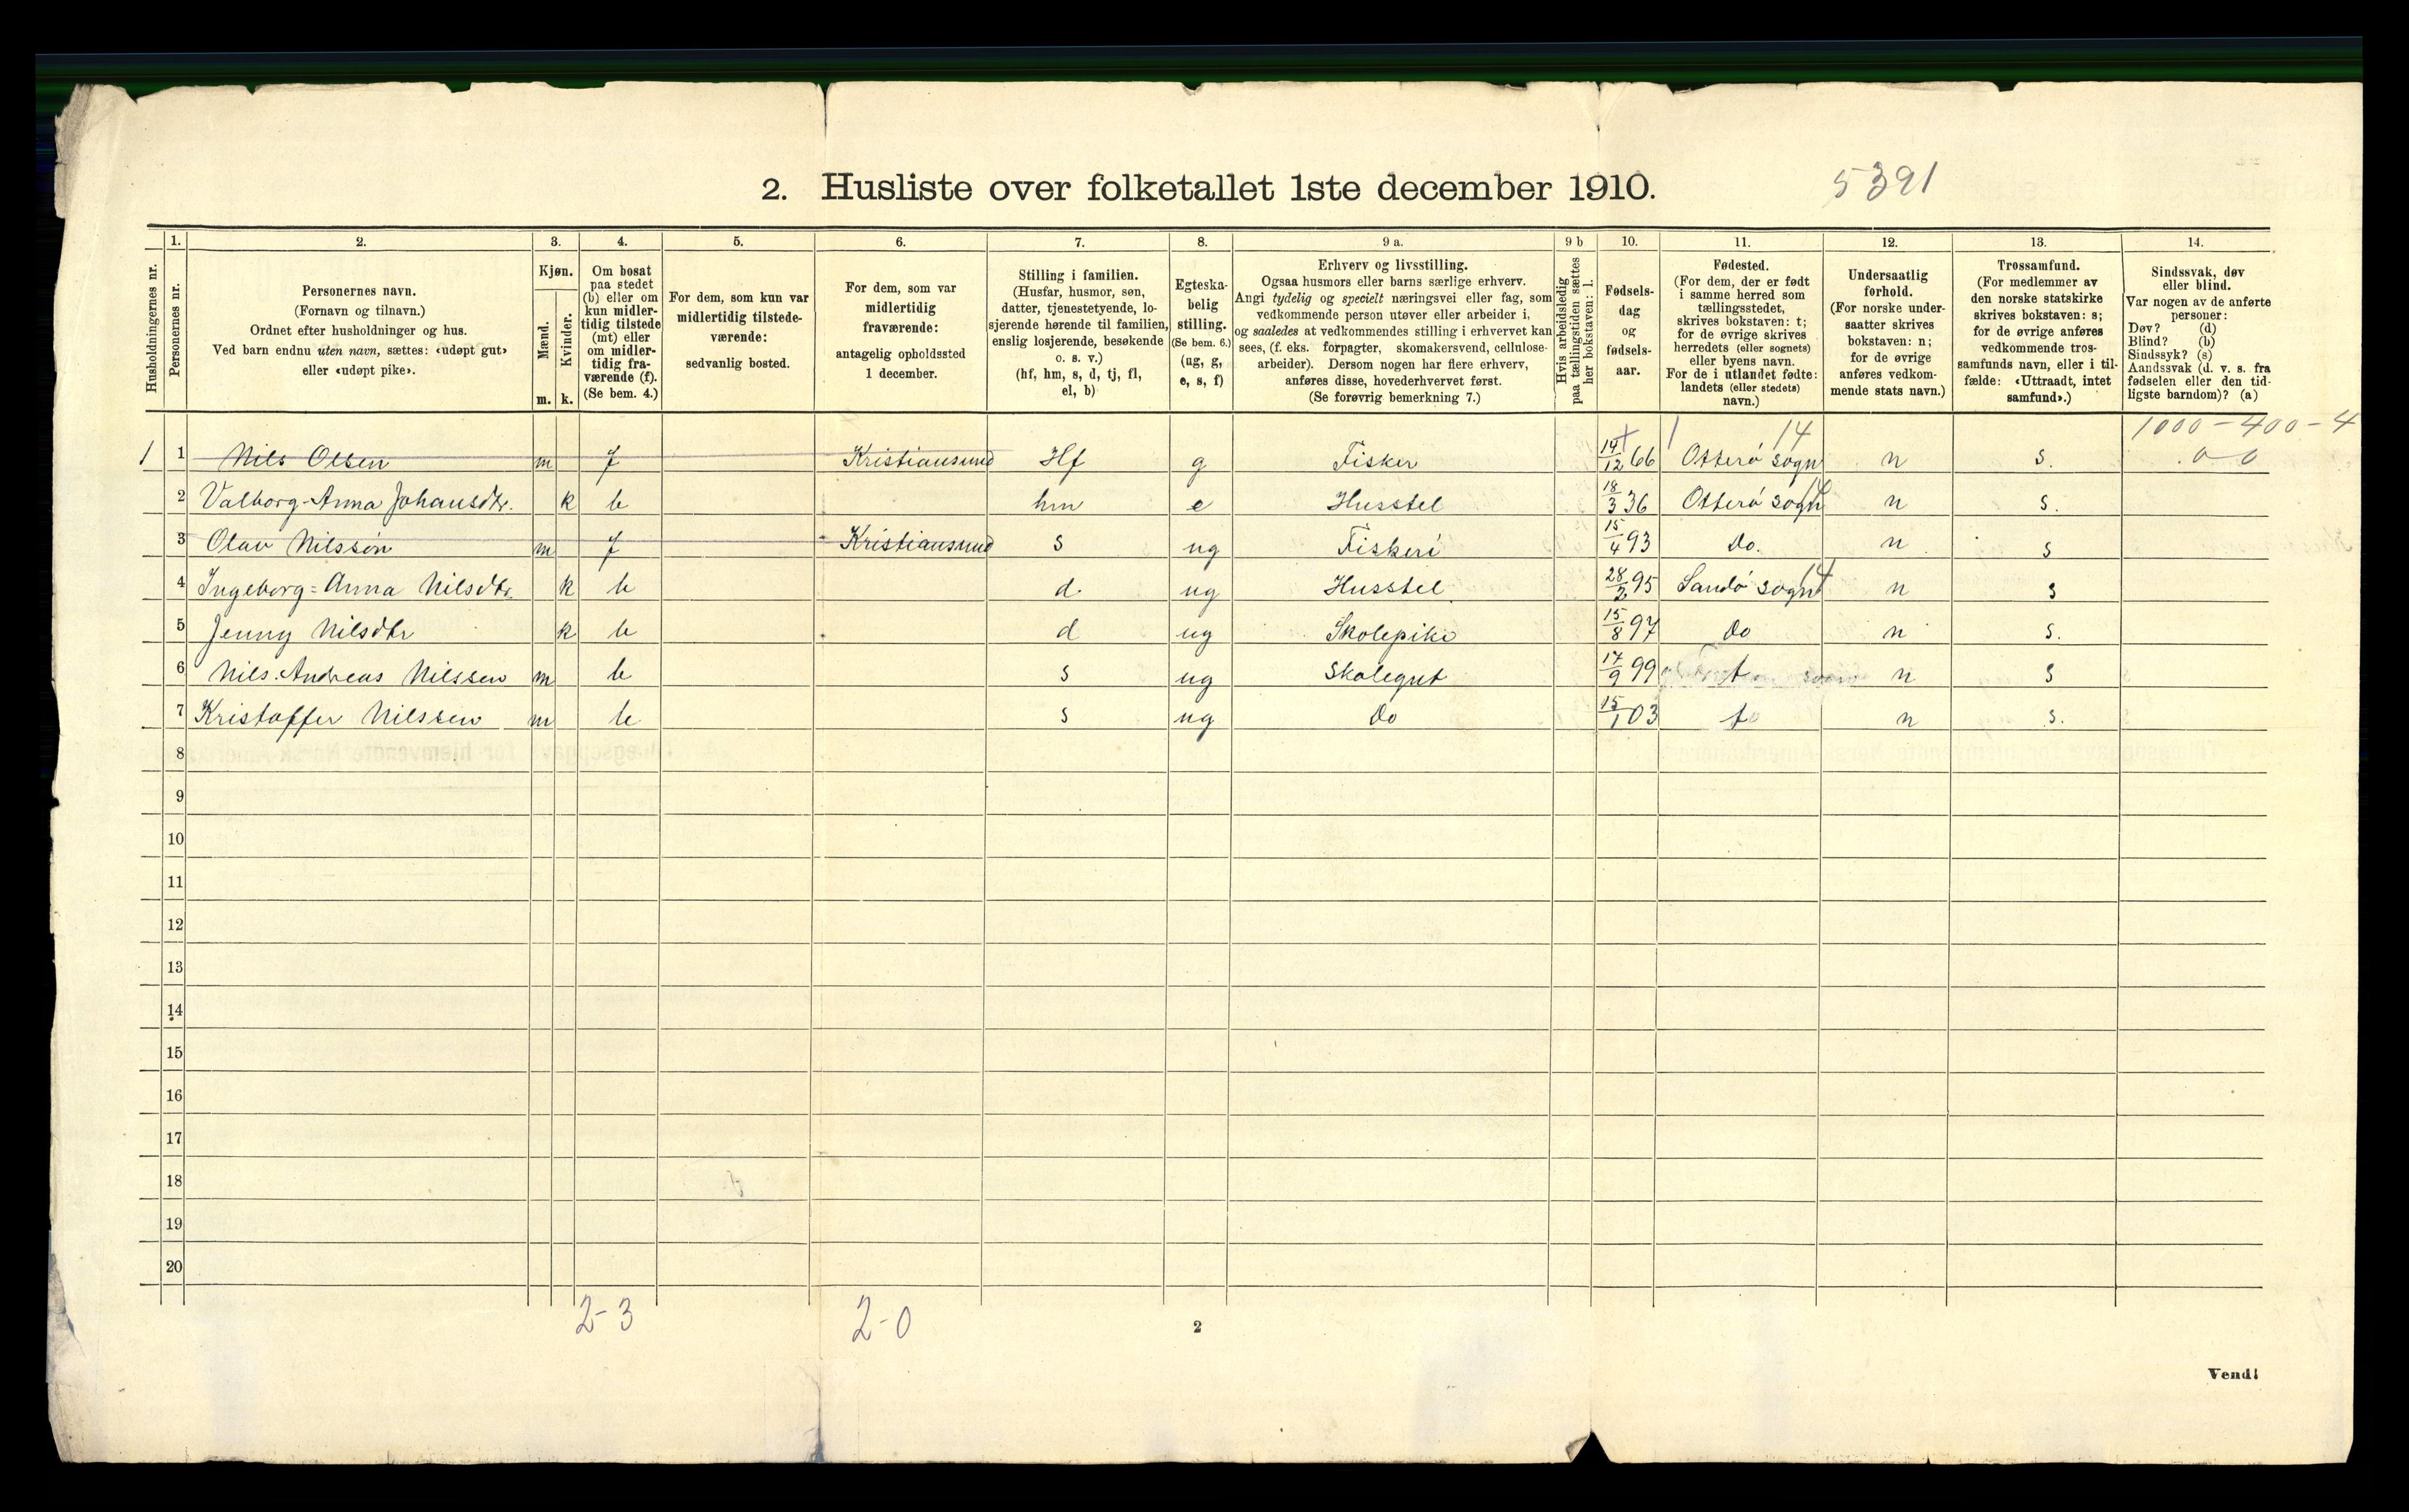 2. Husliste over folketallet 1ste december 1910.
5391
Husholdningernes nr.
1.
Personernes nr.
2.
Personernes navn.
(Fornavn og tilnavn.)
Ordnet efter husholdninger og hus.
Ved barn endnu uten navn, sættes: «udøpt gut»
eller «udøpt pike».
3.
Kjøn.
Mænd.
Kvinder.
m. k.
4.
Om bosat
paa stedet
(b) eller om
kun midler-
tidig tilstede
(mt) eller
om midler-
tidig fra-
værende (f).
(Se bem. 4.)
5.
For dem, som kun var
midlertidig tilstede-
værende:
sedvanlig bosted.
6.
For dem, som var
midlertidig
fraværende:
antagelig opholdssted
1 december.
7.
Stilling i familien.
(Husfar, husmor, søn,
datter, tjenestetyende, lo-
sjerende hørende til familien,
enslig losjerende, besøkende
o. s. v.)
(hf, hm, s, d, tj, fl,
el, b)
8.
Egteska-
belig
stilling.
(Se bem. 6.)
(ug, g,
e, s, f)
9 a.
Erhverv og livsstilling.
Ogsaa husmors eller barns særlige erhverv.
Angi tydelig og specielt næringsvei eller fag, som
vedkommende person utøver eller arbeider i,
og saaledes at vedkommendes stilling i erhvervet kan
sees, (f. eks. forpagter, skomakersvend, cellulose-
arbeider). Dersom nogen har flere erhverv,
anføres disse, hovederhvervet først.
(Se forøvrig bemerkning 7.)
9 b
Hvis arbeidsledig
paa tællingstiden sættes
her bokstaven: l.
10.
Fødsels-
dag
og
fødsels-
aar.
11.
Fødested.
(For dem, der er født
i samme herred som
tællingsstedet,
skrives bokstaven: t;
for de øvrige skrives
herredets (eller sognets)
eller byens navn.
For de i utlandet fødte:
landets (eller stedets)
navn.)
12.
Undersaatlig
forhold.
(For norske under-
saatter skrives
bokstaven: n;
for de øvrige
anføres vedkom-
mende stats navn.)
13.
Trossamfund.
(For medlemmer av
den norske statskirke
skrives bokstaven: s;
for de øvrige anføres
vedkommende tros-
samfunds navn, eller i til-
fælde: «Uttraadt, intet
samfund».)
14.
Sindssvak, døv
eller blind.
Var nogen av de anførte
personer:
Døv? (d)
Blind? (b)
Sindssyk? (s)
Aandssvak (d. v. s. fra
fødselen eller den tid-
ligste barndom)? (a)
14 1000-400-4
1 1 Nils Olsen m f Kristiansund Hf g Fisker 14/12 66 Otterö sogn n s. 0-0
2 Valborg-Anna Johansdtr. k b hm e Husstel 18/3 36 Otterö sogn n s.
3 Olav Nilssön m f Kristiansund s ug Fiskeri 15/4 93 Do. n s
4 Ingeborg=Anna Nilsdtr. k b d ug Husstel 28/2 95 Sandö sogn 14 n s
5 Jenny Nilsdtr k b d ug Skolepike 15/8 97 Do n s.
6 Nils. Andreas Nilssen m b s ug Skolegut 17/9 99 t n s
7 Kristoffer Nilssen m b s ug Do 15/1 03 t n s.
8
9
10
11
12
13
14
15
16
17
18
19
20
2-3 2-0
2
Vend!